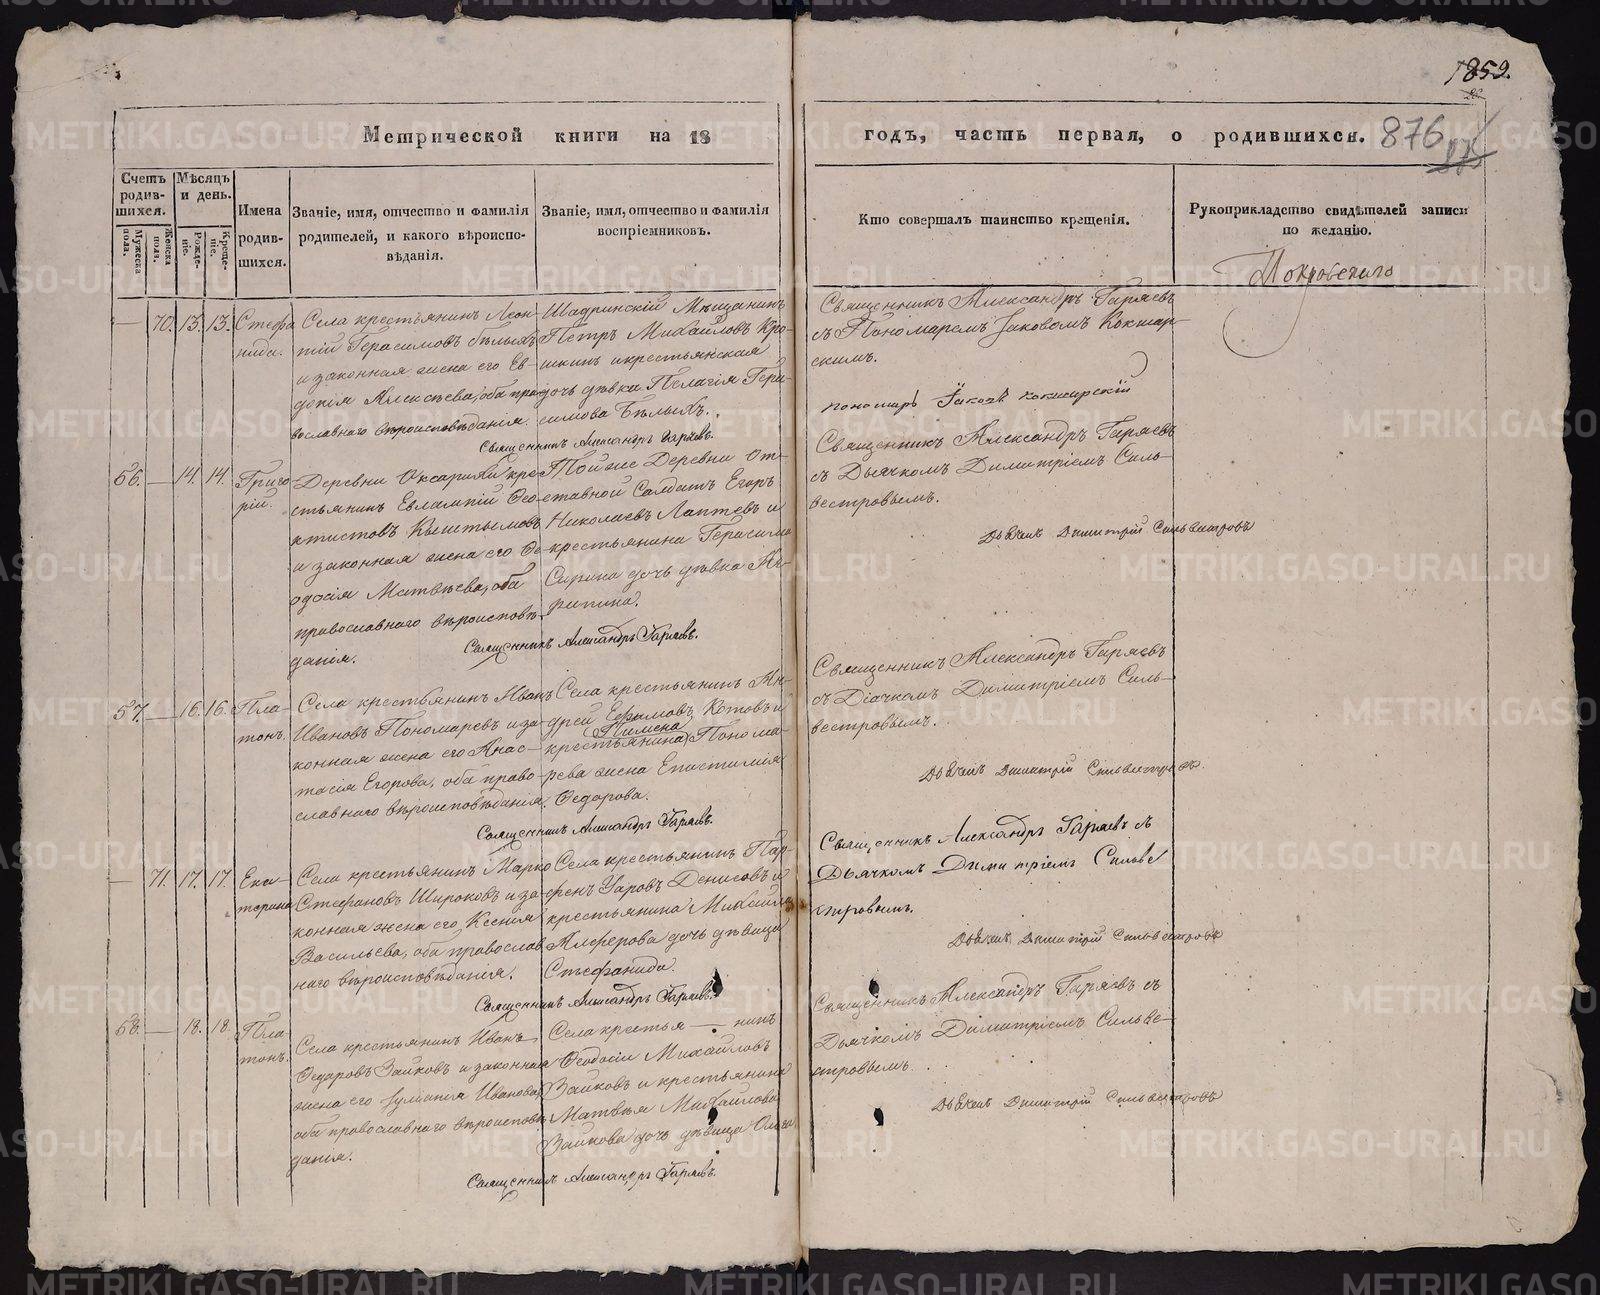 1859.
Метрической книги на 18
годъ, часть первая, о родившихся. 876
Счетъ родив-шихся.
Мужеска пола.
Женска пола.
Мѣсяцъ и день.
Рожде-ніе.
Креще-ніе.
Имена родив-шихся.
Званіе, имя, отчество и фамилія
родителей, и какого вѣроиспо-
вѣданія.
Званіе, имя, отчество и фамилія
воспріемниковъ.
Кто совершалъ таинство крещенія.
Рукоприкладство свидѣтелей записи
по желанію.
Покровскаго
70. 13. 13. Стефа-
нида.
Села крестьянинъ Леон-
тій Герасимовъ Бѣлыхъ
и законная жена его Ев-
докія Алексѣева, оба пра-
вославнаго вѣроисповѣданія.
Шадринскій Мѣщанинъ
Петръ Михайловъ Кро-
шкинъ и крестьянская
дочь дѣвка Пелагія Гера-
симова Бѣлыхъ.
Священникъ Александръ Гаряевъ.
Священникъ Александръ Гаряевъ
съ Пономаремъ Іаковомъ Кокшар-
скимъ.
пономарь Іаковъ Кокшарскій
56. 14. 14. Григо-
рій.
Деревни кре-
стьянинъ Евлампій Ѳео-
ктистовъ Кыштымовъ
и законная жена его Ѳе-
одосія Матвѣева, оба
православнаго вѣроисповѣ-
данія.
Той же Деревни От-
ставной Солдатъ Егоръ
Николаевъ Лаптевъ и
крестьянина Герасима
Сирина дочь дѣвка Аг-
рипина.
Священникъ Александръ Гаряевъ.
Священникъ Александръ Гаряевъ
съ Дьячкомъ Димитріемъ Силь-
вестровымъ.
Дьячекъ Димитрій Сильвестровъ
57. 16. 16. Пла-
тонъ.
Села крестьянинъ Иванъ
Ивановъ Пономаревъ и за-
конная жена его Анас-
тасія Егорова, оба право-
славнаго вѣроисповѣданія.
Села крестьянинъ Ан-
дрей Ефимовъ Котовъ и
Пимена
крестьянина Понома-
рева жена Епистимія
Ѳедорова.
Священникъ Александръ Гаряевъ.
Священникъ Александръ Гаряевъ
съ Діачкомъ Димитріемъ Силь-
вестровымъ.
Дьячекъ Димитрій Сильвестровъ.
71. 17. 17. Ека-
терина
Села крестьянинъ Марко
Стефановъ Широковъ и за-
конная жена его Ксенія
Васильева, оба православ-
наго вѣроисповѣданія.
Села крестьянинъ Пар-
фенъ Уаровъ Денисовъ и
крестьянина Михаила
Алферова дочь дѣвица
Стефанида.
Священникъ Александръ Гаряевъ.
Священникъ Александръ Гаряевъ съ
Дьячкомъ Димитріемъ Сильве
стровымъ.
Дьячекъ Димитрій Сильвестровъ
58. 18. 18. Пла-
тонъ.
Села крестьянинъ Иванъ
Ѳедоровъ Зайковъ и законная
жена его Іуліанія Иванова,
оба православнаго вѣроисповѣ-
данія.
Села крестья — нинъ
Ѳеодосій Михайловъ
Зайковъ и крестьянина
Матвѣя Михайлова
Зайкова дочь дѣвица Ольга
Священникъ Александръ Гаряевъ.
Священникъ Александръ Гаряевъ съ
Дьячкомъ Димитріемъ Сильве-
стровымъ.
Дьячекъ Димитрій Сильвестровъ
METRIKI.GASO-URAL.RU